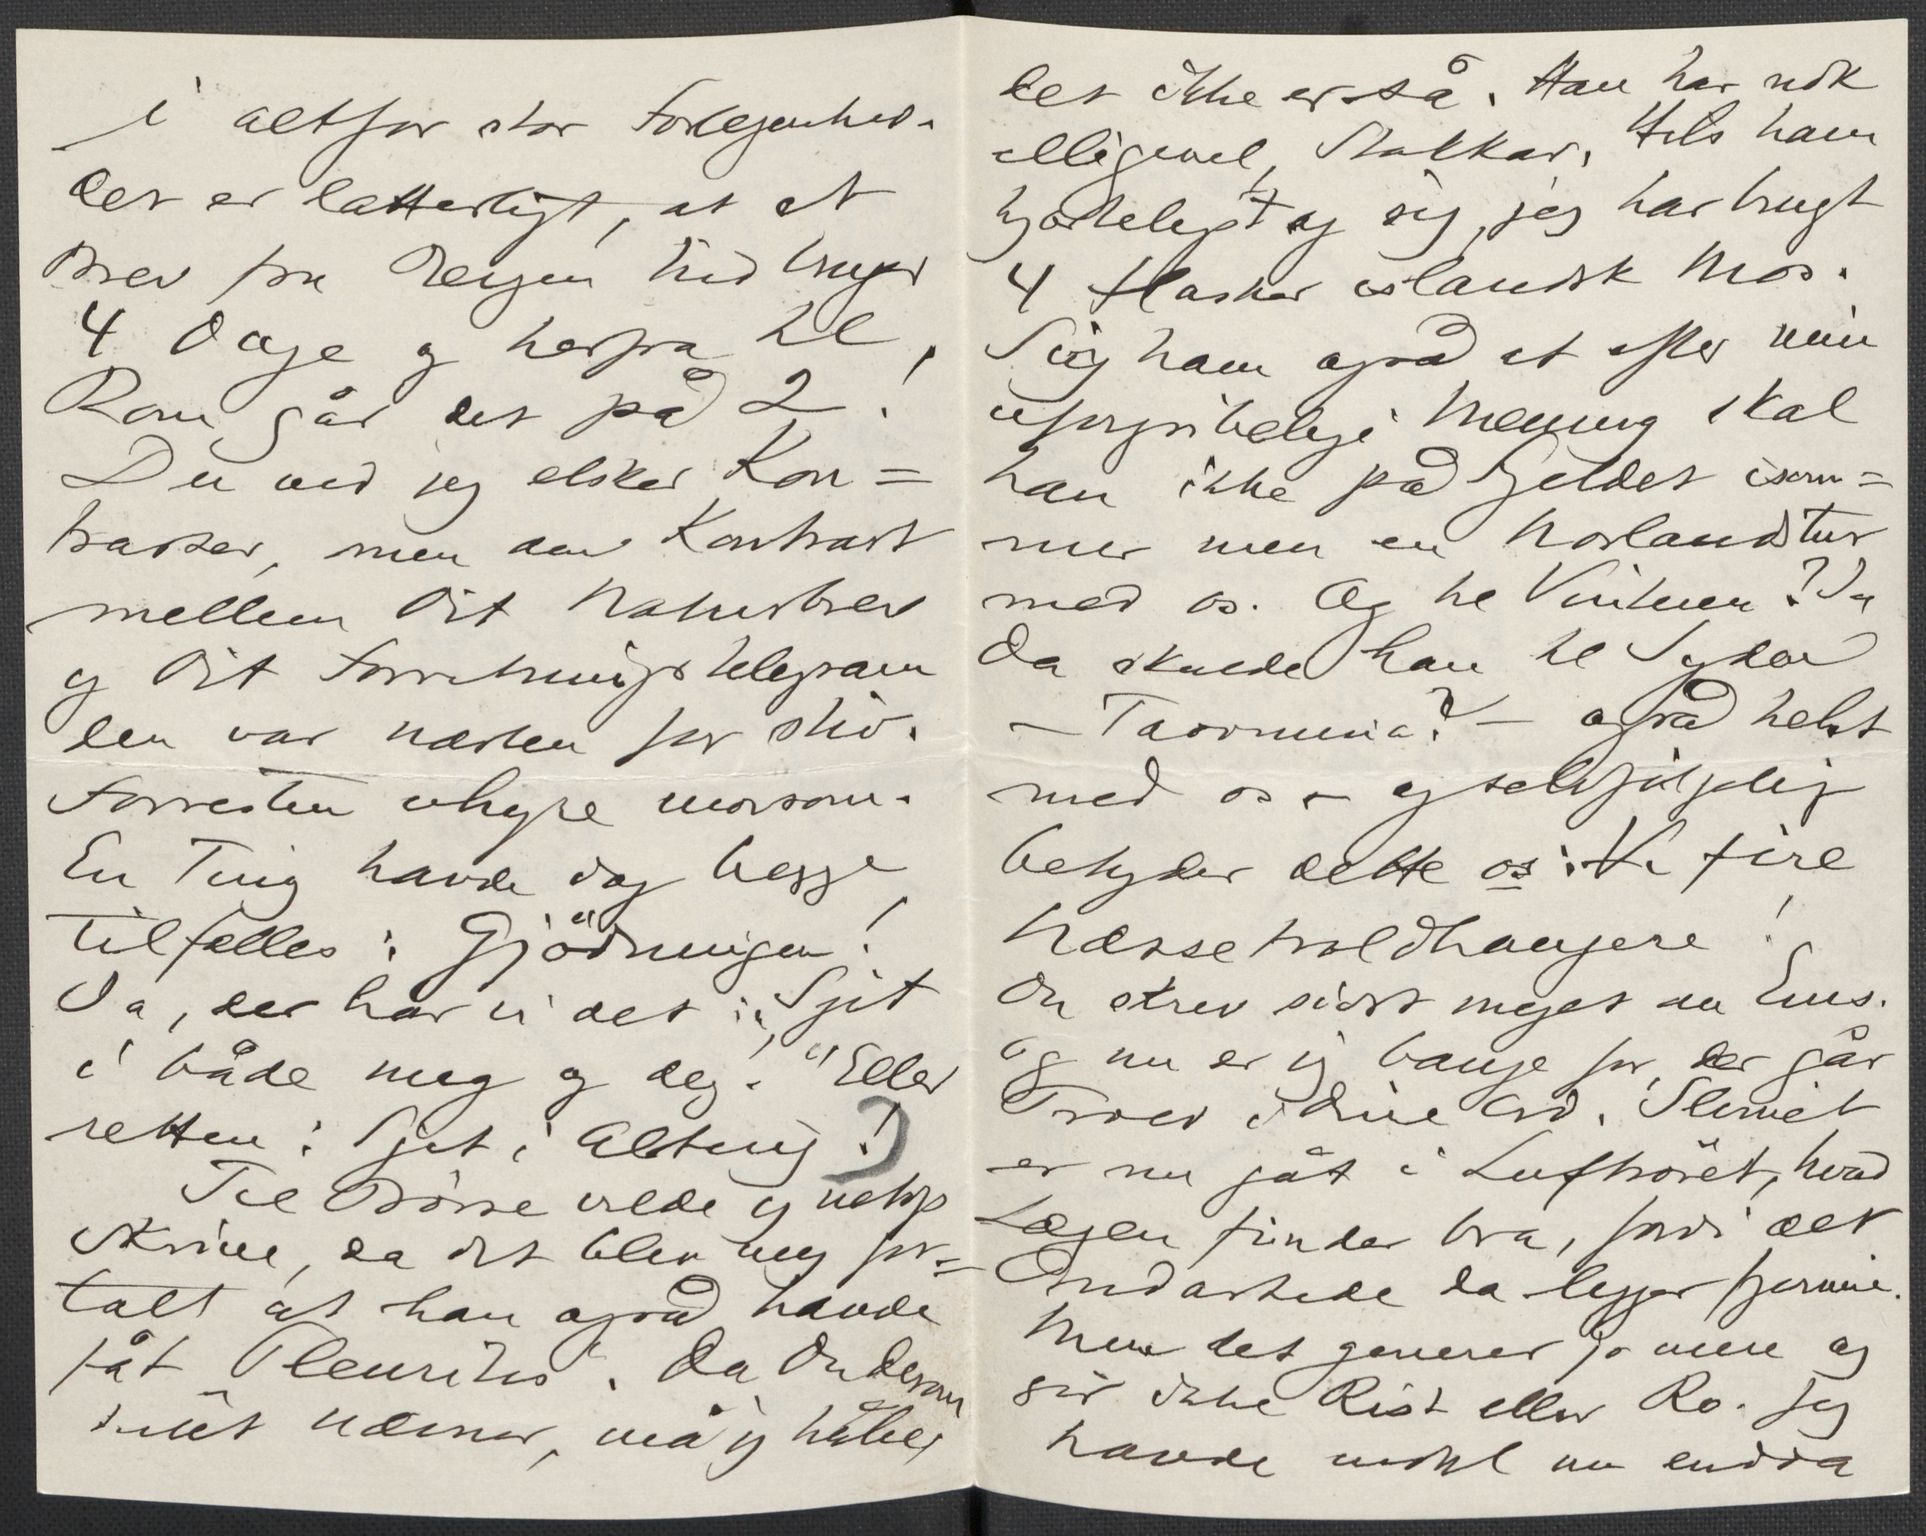 i altfor stor Forlegenhed.
det er latterligt, at et
Brev fra Bergen hid bruger
4 Dage og herfra til
Rom går det på 2!
Du ved jeg elsker Kon=
traster, men den Kontrast
mellem Dit Naturbrev
og Dit Forretningstelegram
den var næsten for stiv.
Forresten uhyre morsom.
En Ting havde dog begge
tilfælles: Gjödningen!
Ja, der har vi det: "Sjit
i både meg og deg!" Eller
retten: Sjit i Alting!
Til Börre vilde jeg netop
skrive, da det blev mig for=
talt at han også havde
fåt Pleuritis. Da Du derom
intet nævner, må jeg håbe,
det ikke er så. Han har nok
alligevel, Stakkar. Hils ham
hjerteligst og sig, jeg har brugt
4 Flasker islandsk Mos.
Sig ham også at efter min
uforgribelige Mening skal
han ikke på Fjeldet isom=
mer men en Norlandstur
med os. Og til Vinteren? Ja
da skulde han til Syden
– Taormina? – også helst
med os – og selvfölgelig
betyder dette os: Vi fire
Hæssetroldhaugere!
Du skrev sidst meget om Ems.
Og nu er jeg bange for, der går
Trold i dine Ord. Slimet
er nu gåt i Luftröret, hvad
Lægen finder bra, fordi det
Ondartede da ligger fjernere.
Men det generer jo mere og
gir ikke Rist eller Ro. Jeg
havde nok nu endda